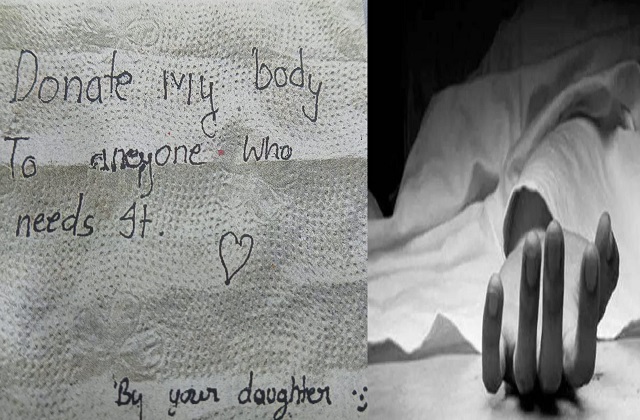 Donate My body
To anyone who
needs It.
♡
By your daughter :)